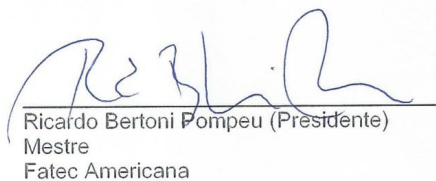 Ricardo Bertoni Pompeu (Presidente)
Mestre
Fatec Americana